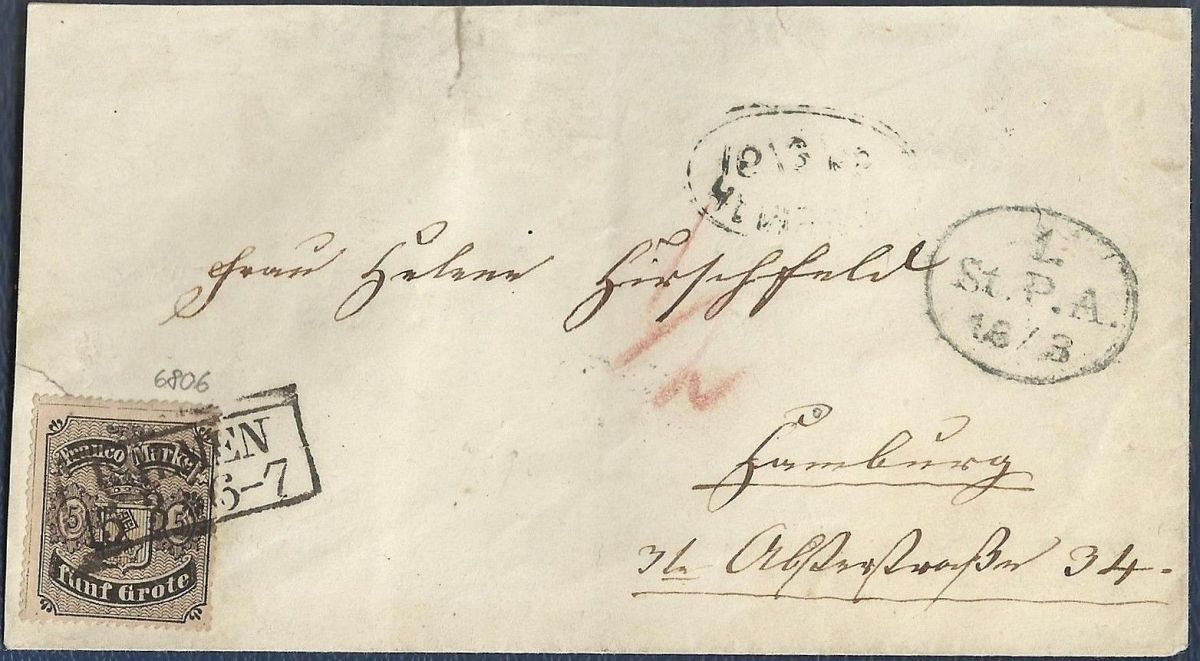 L
St. P. A.
18/3
Frau Helene Hirschfeld
Hamburg
3te Alsterstraße 34.
6806
EN
6–7
Franco Marke
5 5
fünf Grote